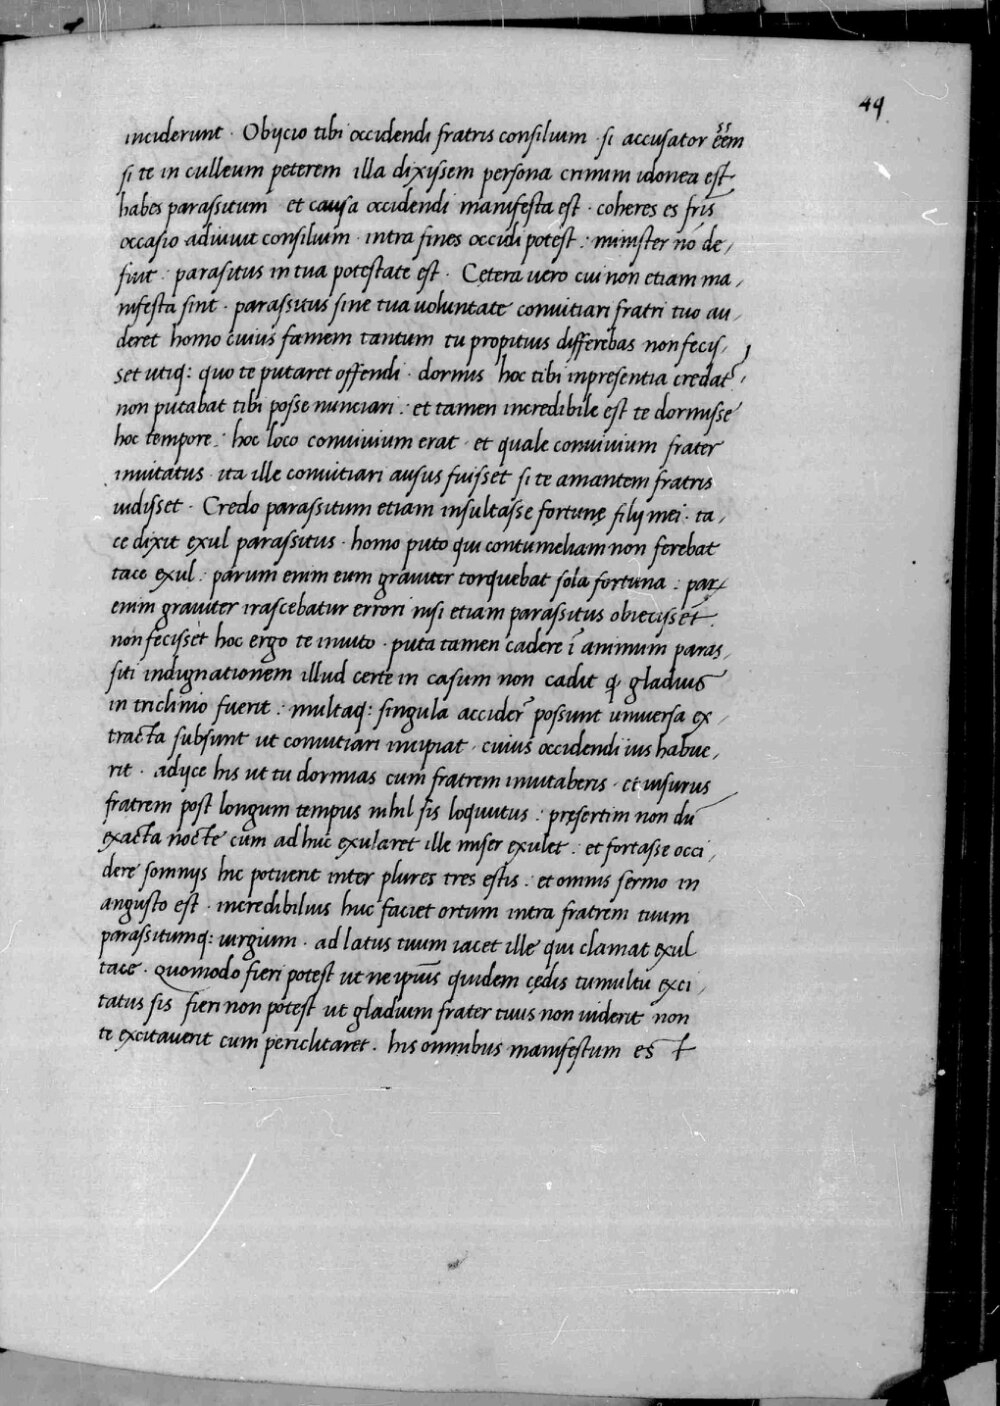 49
inciderunt · Obijcio tibi occidendi fratris consilium · si accusator eēm
si te in culleum peterem illa dixissem persona crimini idonea est
habes parassitum et causa occidendi manifesta est · coheres es fr̄is
occasio adiuuit consilium · intra fines occidi potest : minister nō de/
fuit : parasitus in tua potestate est · Cętera uero cui non etiam ma/
nifesta sint · parassitus sine tua uoluntate conuitiari fratri tuo au/
deret homo cuius famem tantum tu propitius differebas non fecis/
set utiq: quo te putaret offendi · dormis hoc tibi inpresentia credat'
non putabat tibi posse nunciari : et tamen incredibile est te dormisse
hoc tempore : hoc loco conuiuium erat · et quale conuiuium frater
inuitatus · ita ille conuitiari ausus fuisset si te amantem fratris
uidisset · Credo parassitum etiam insultasse fortunę filij mei · ta/
ce dixit exul parassitus · homo puto qui contumeliam non ferebat
tace exul : parum enim eum grauiter torquebat sola fortuna : par
enim grauiter irascebatur errori nisi etiam parassitus obiecisset .
non fecisset hoc ergo te inuito · puta tamen cadere ī animum paras/
siti indignationem illud certe in casum non cadit q̨ gladius
in triclinio fuerit : multaq: singula accider̄ possunt uniuersa ex/
tracta subsunt ut conuitiari incipiat · cuius occidendi ius habue/
rit · adijce his ut tu dormias cum fratrem inuitaberis · et uisurus
fratrem post longum tempus nihil sis loquutus : pręsertim non dū
exacta nocte cum ad huc exularet ille miser exulet : et fortasse occi/
dere somnijs hic potuerit inter plures tres estis : et omnis sermo in
angusto est · incredibilius huc faciet ortum intra fratrem tuum
parassitumq: iurgium · ad latus tuum iacet ille qui clamat exul
tace · Quomodo fieri potest ut ne ipsius quidem cędis tumultu exci/
tatus sis fieri non potest ut gladium frater tuus non uiderit non
te excitauerit cum periclitaret · his omnibus manifestum est